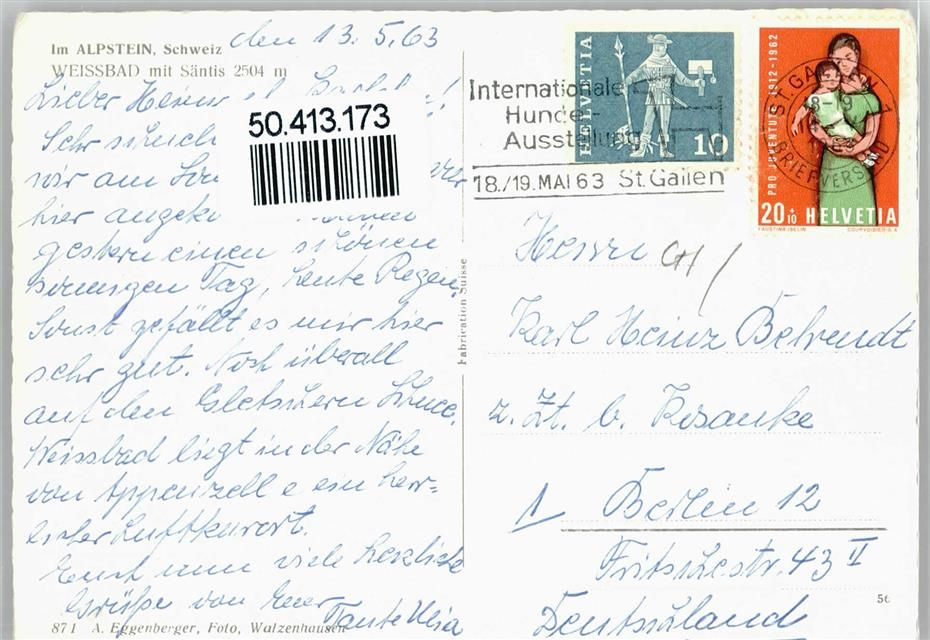 Im ALPSTEIN, Schweiz
WEISSBAD mit Säntis 2504 m
den 13. 5. 63
Lieber Heinz
50.413.173
Sehr
wir am
hier
gestern einen schönen
sonnigen Tag, heute Regen.
Sonst gefällt es mir hier
sehr gut. Noch überall
auf den Gletschern Schnee.
Weissbad liegt in der Nähe
von Appenzell e ein herr=
licher Luftkurort.
Euch nun viele herzliche
Grüße von Eurer
Tante
871 A. Eggenberger, Foto, Walzenhausen
Fabrication Suisse
Internationale
Hunde-
Ausstellung
18./19. MAI 63 St. Gallen
HELVETIA
10
PRO JUVENTUTE 1912-1962
20+10 HELVETIA
COURVOISIER S.A.
ST. GALLEN 1
BRIEFVERSAND
Herrn CH
Karl Heinz Behrendt
z. Zt. b. Kosanke
1 Berlin 12
Fritschestr. 43 II
Deutschland